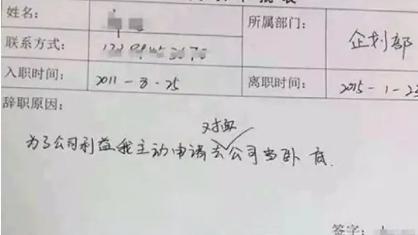 姓名：
所属部门：企划部
联系方式：
入职时间：2011-8-25
离职时间：2015-1-23
辞职原因：
对
为了公司利益我主动申请去公司当卧底.
签字：